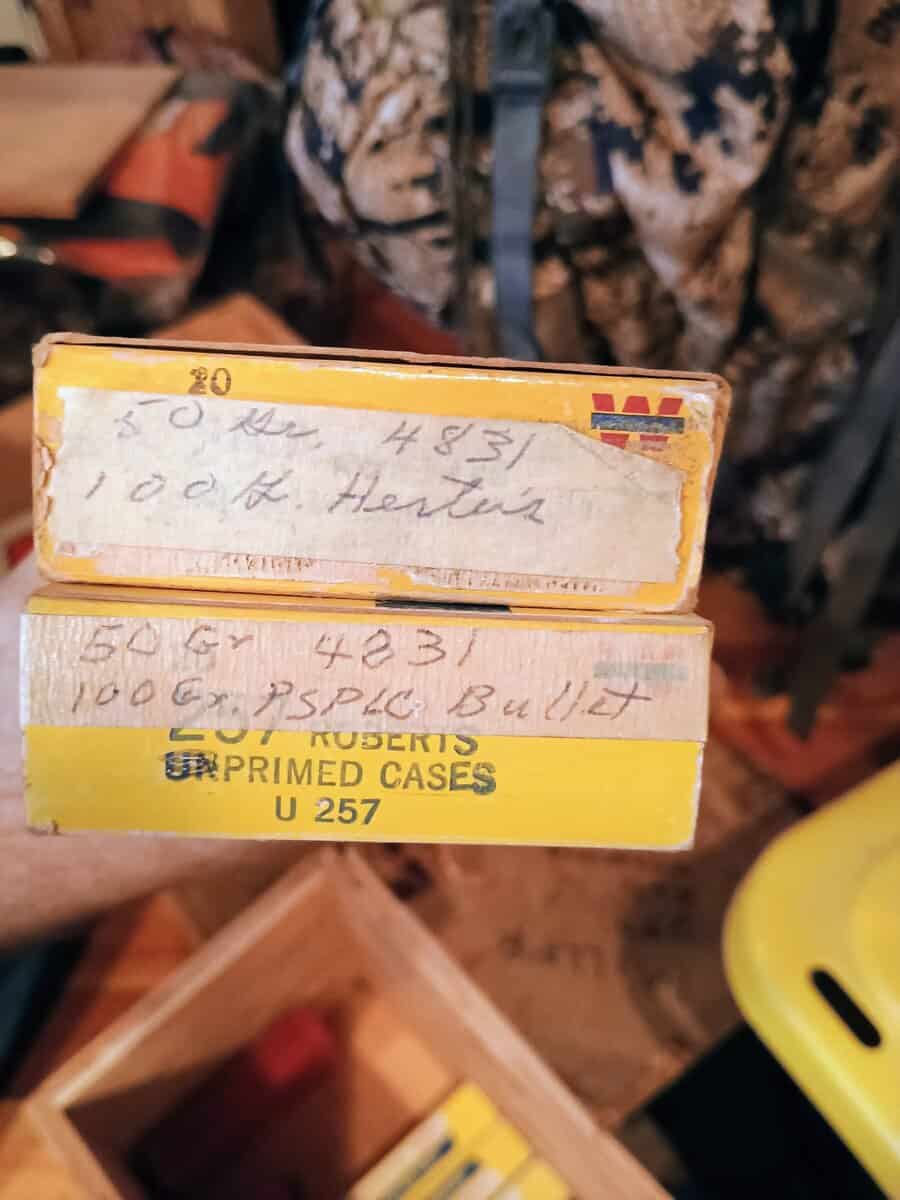 20
W
50 Gr. 4831
100 Gr. Herter's
50 Gr 4831
100 Gr. PSPLC Bullet
257 ROBERTS
UNPRIMED CASES
U 257